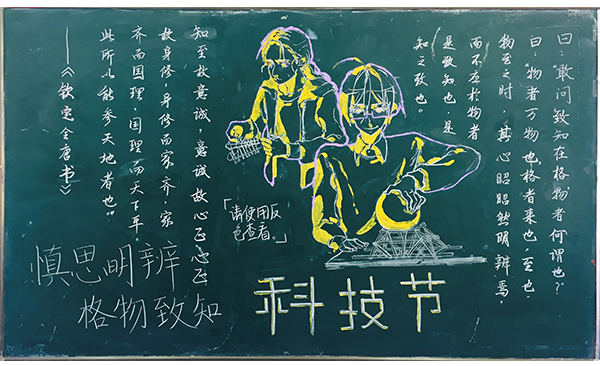 曰:“敢问致知在格物者何谓也?”
曰:“物者,万物也,格者,来也,至也,
物至之时,其心昭昭然明辨焉,
而不应於物者
是致知也,是
知之致也。
知至故意诚,意诚故心正,心正
故身修,身修而家齐,家
齐而国理,国理而天下平,
此所以能参天地者也”
——《钦定全唐书》
「请使用反
色查看。」
慎思明辨
格物致知
科技节